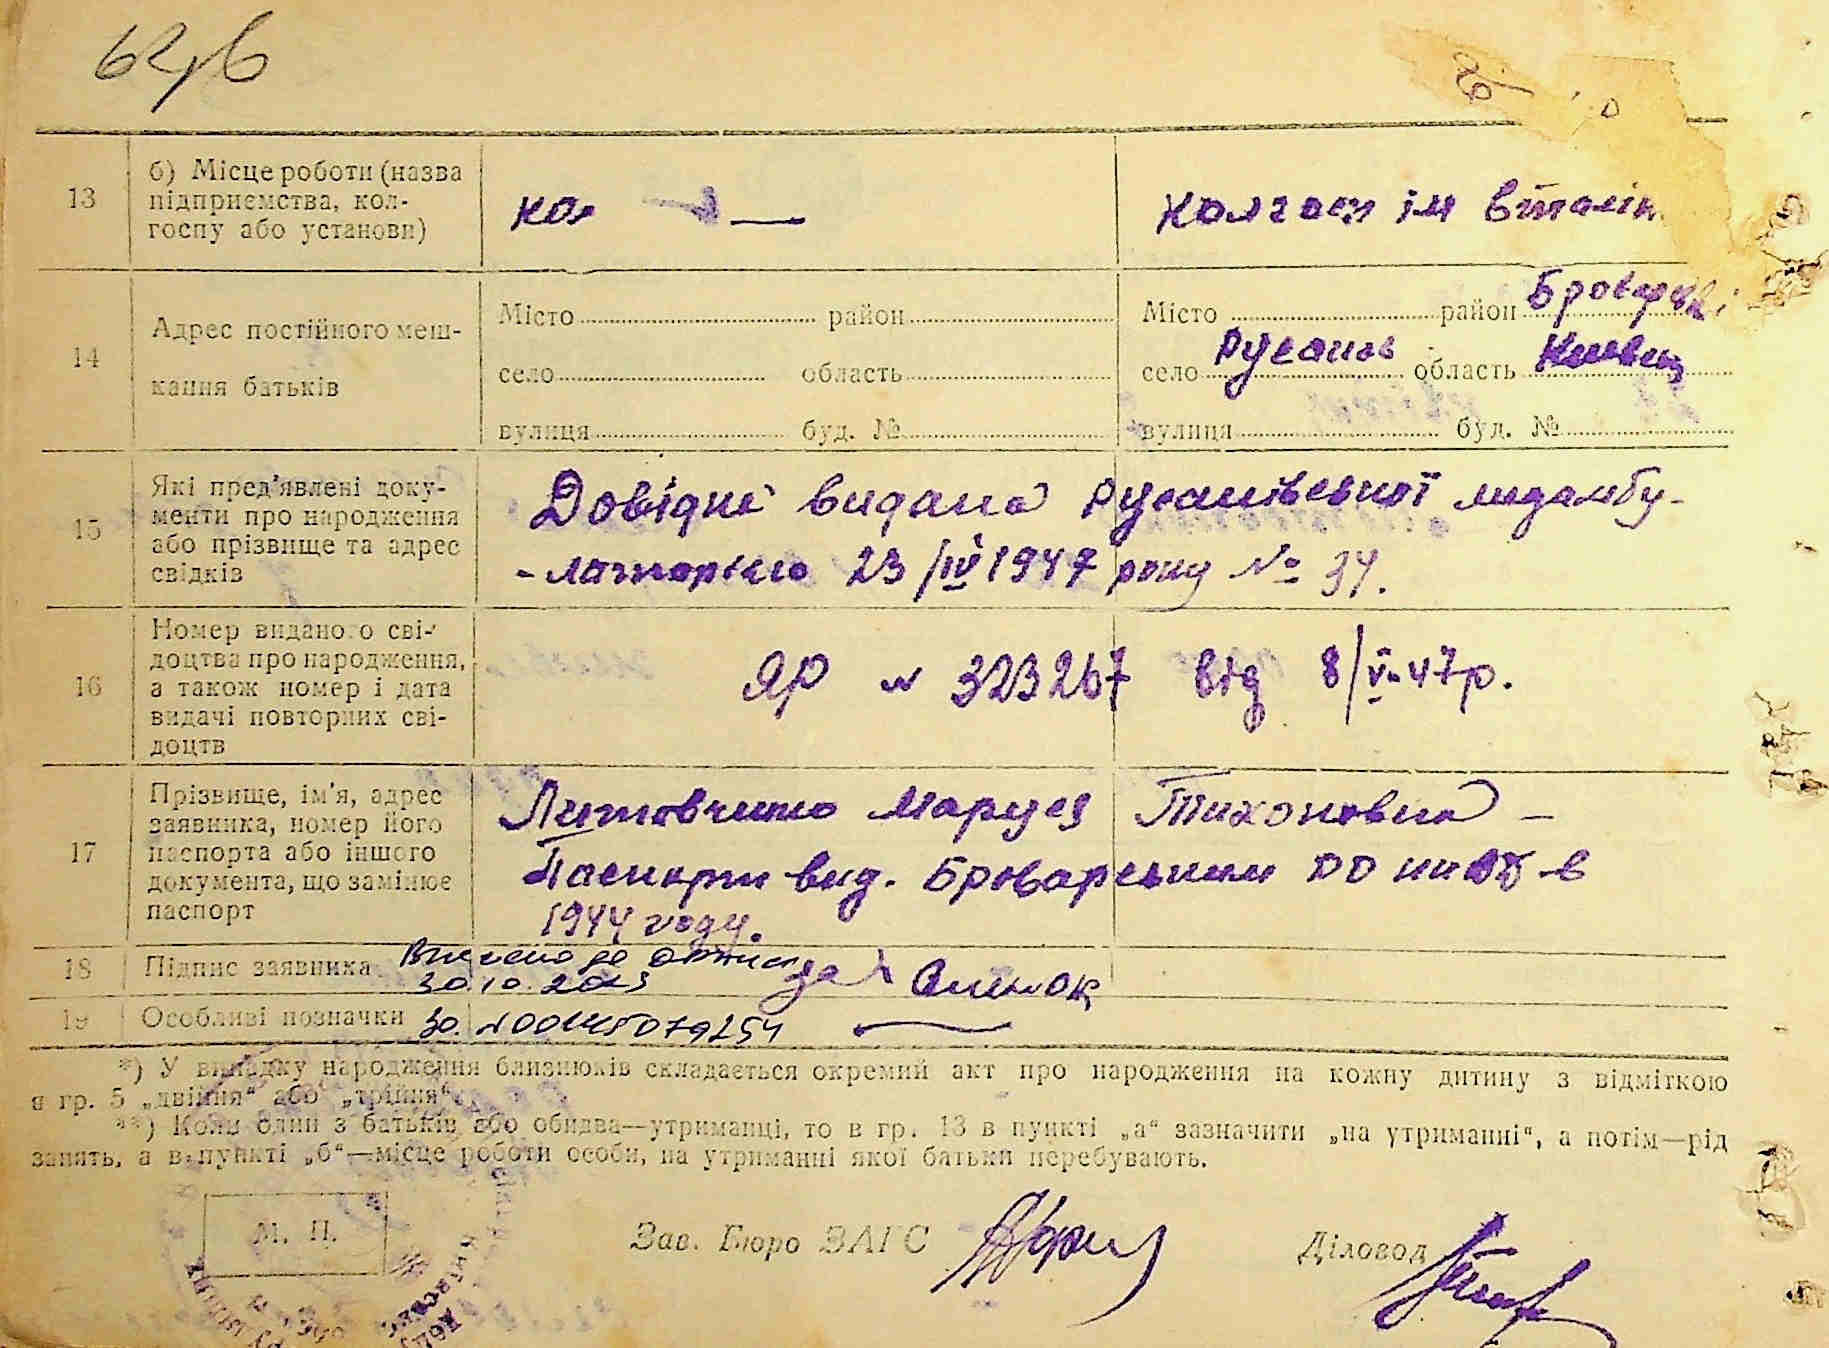 13 б) Місце роботи (назва підприємства, колгоспу або установи)
кол —
колгосп ім
14 Адрес постійного мешкання батьків
Місто район
село область
вулиця буд. №
Місто район Броварськ
село Русанов область Київськ
вулиця буд. №
15 Які пред'явлені документи про народження або прізвище та адрес свідків
Довідка видана Русанівської медамбу-
-латорією 23/IV 1947 року № 34.
16 Номер виданого свідоцтва про народження, а також номер і дата видачі повторних свідоцтв
ЯР № 323267 від 8/V-47р.
17 Прізвище, ім'я, адрес заявника, номер його паспорта або іншого документа, що замінює паспорт
Литовченко Маруся Тихоновна —
Паспорт вид. Броварським РО НКВД в
1944 году.
18 Підпис заявника
Внесено до
30.10.2023
за
19 Особливі позначки
*) У випадку народження близнюків складається окремий акт про народження на кожну дитину з відміткою
в гр. 5 „двійня“ або „трійня“.
**) Коли один з батьків або обидва—утриманці, то в гр. 13 в пункті „а“ зазначити „на утриманні“, а потім—рід
занять, а в пункті „б“—місце роботи особи, на утриманні якої батьки перебувають.
М. П.
Зав. Бюро ЗАГС
Діловод